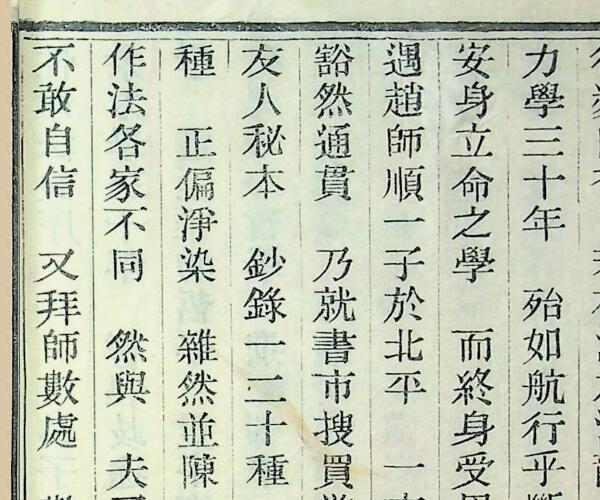 力學三十年　殆如航行乎斷
安身立命之學　而終身受用
遇趙師順一子於北平　一
豁然通貫　乃就書市搜買
友人秘本　鈔錄一二十種
種　正偏淨染　雜然並陳
作法各家不同　然與　夫
不敢自信　又拜師數處